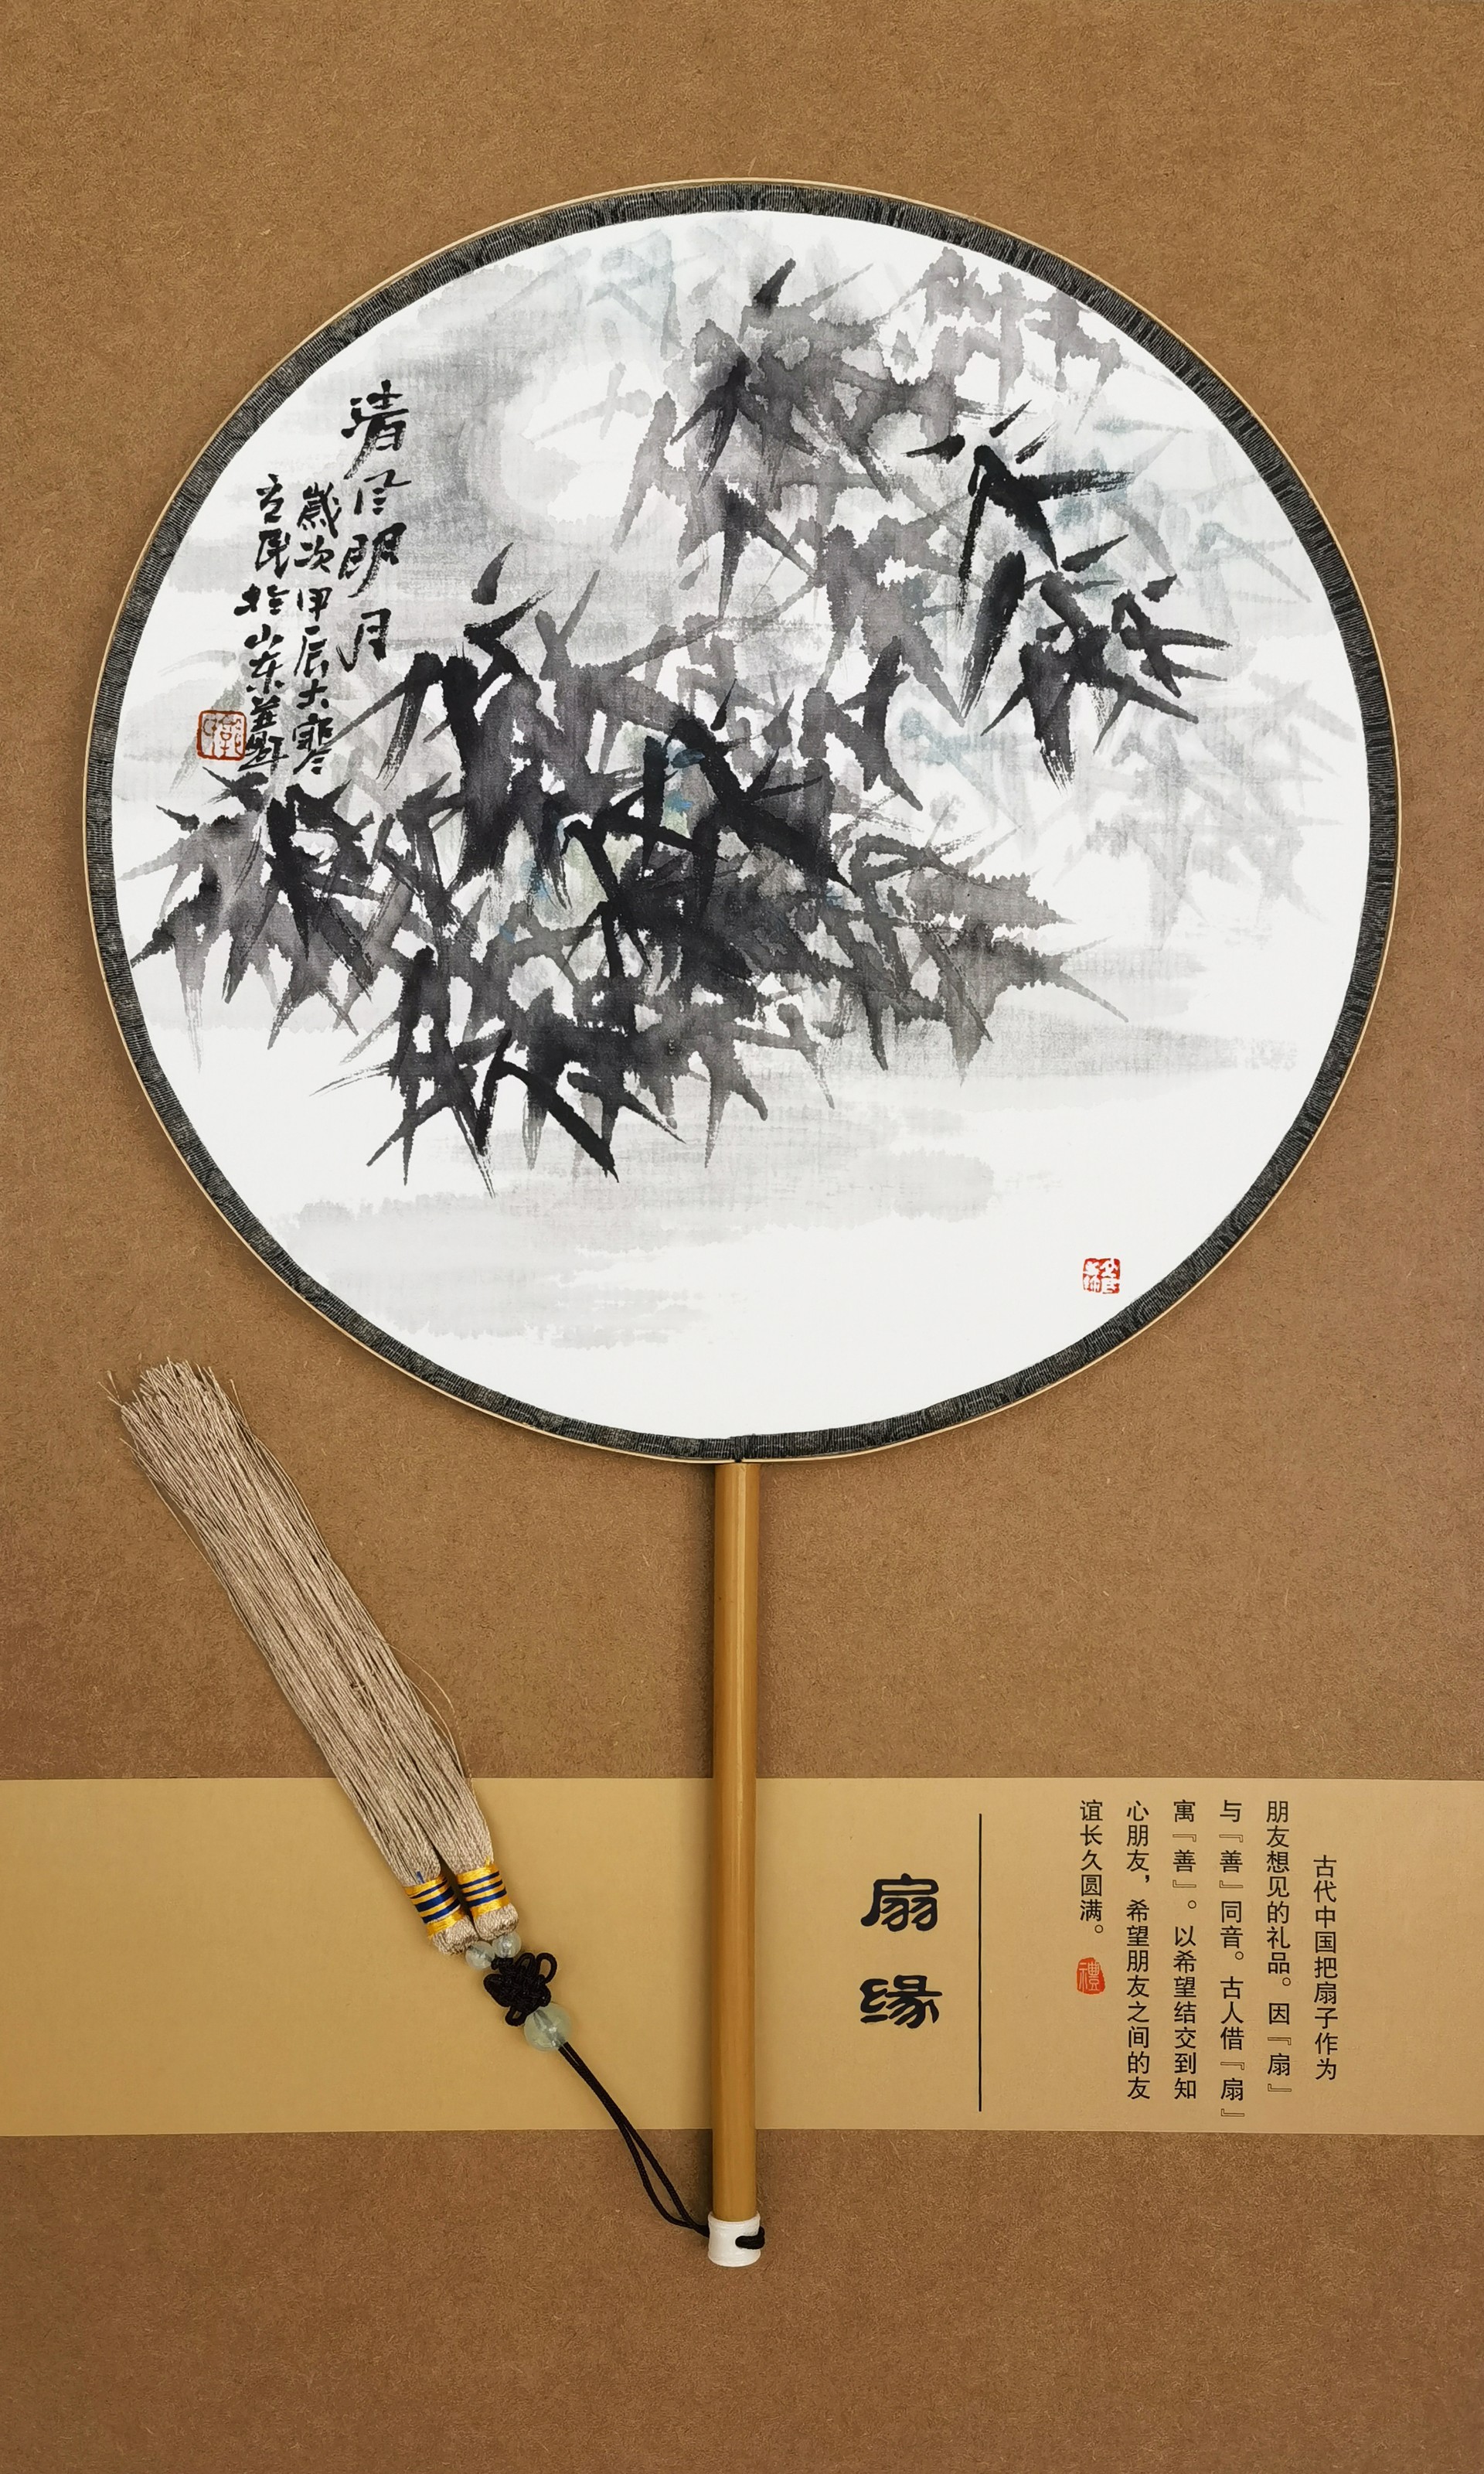 清风明月
歲次甲辰大寒
立民於山东益都
古代中国把扇子作为
朋友想见的礼品。因『扇』
与『善』同音。古人借『扇』
寓『善』。以希望结交到知
心朋友，希望朋友之间的友
谊长久圆满。
禮
扇缘